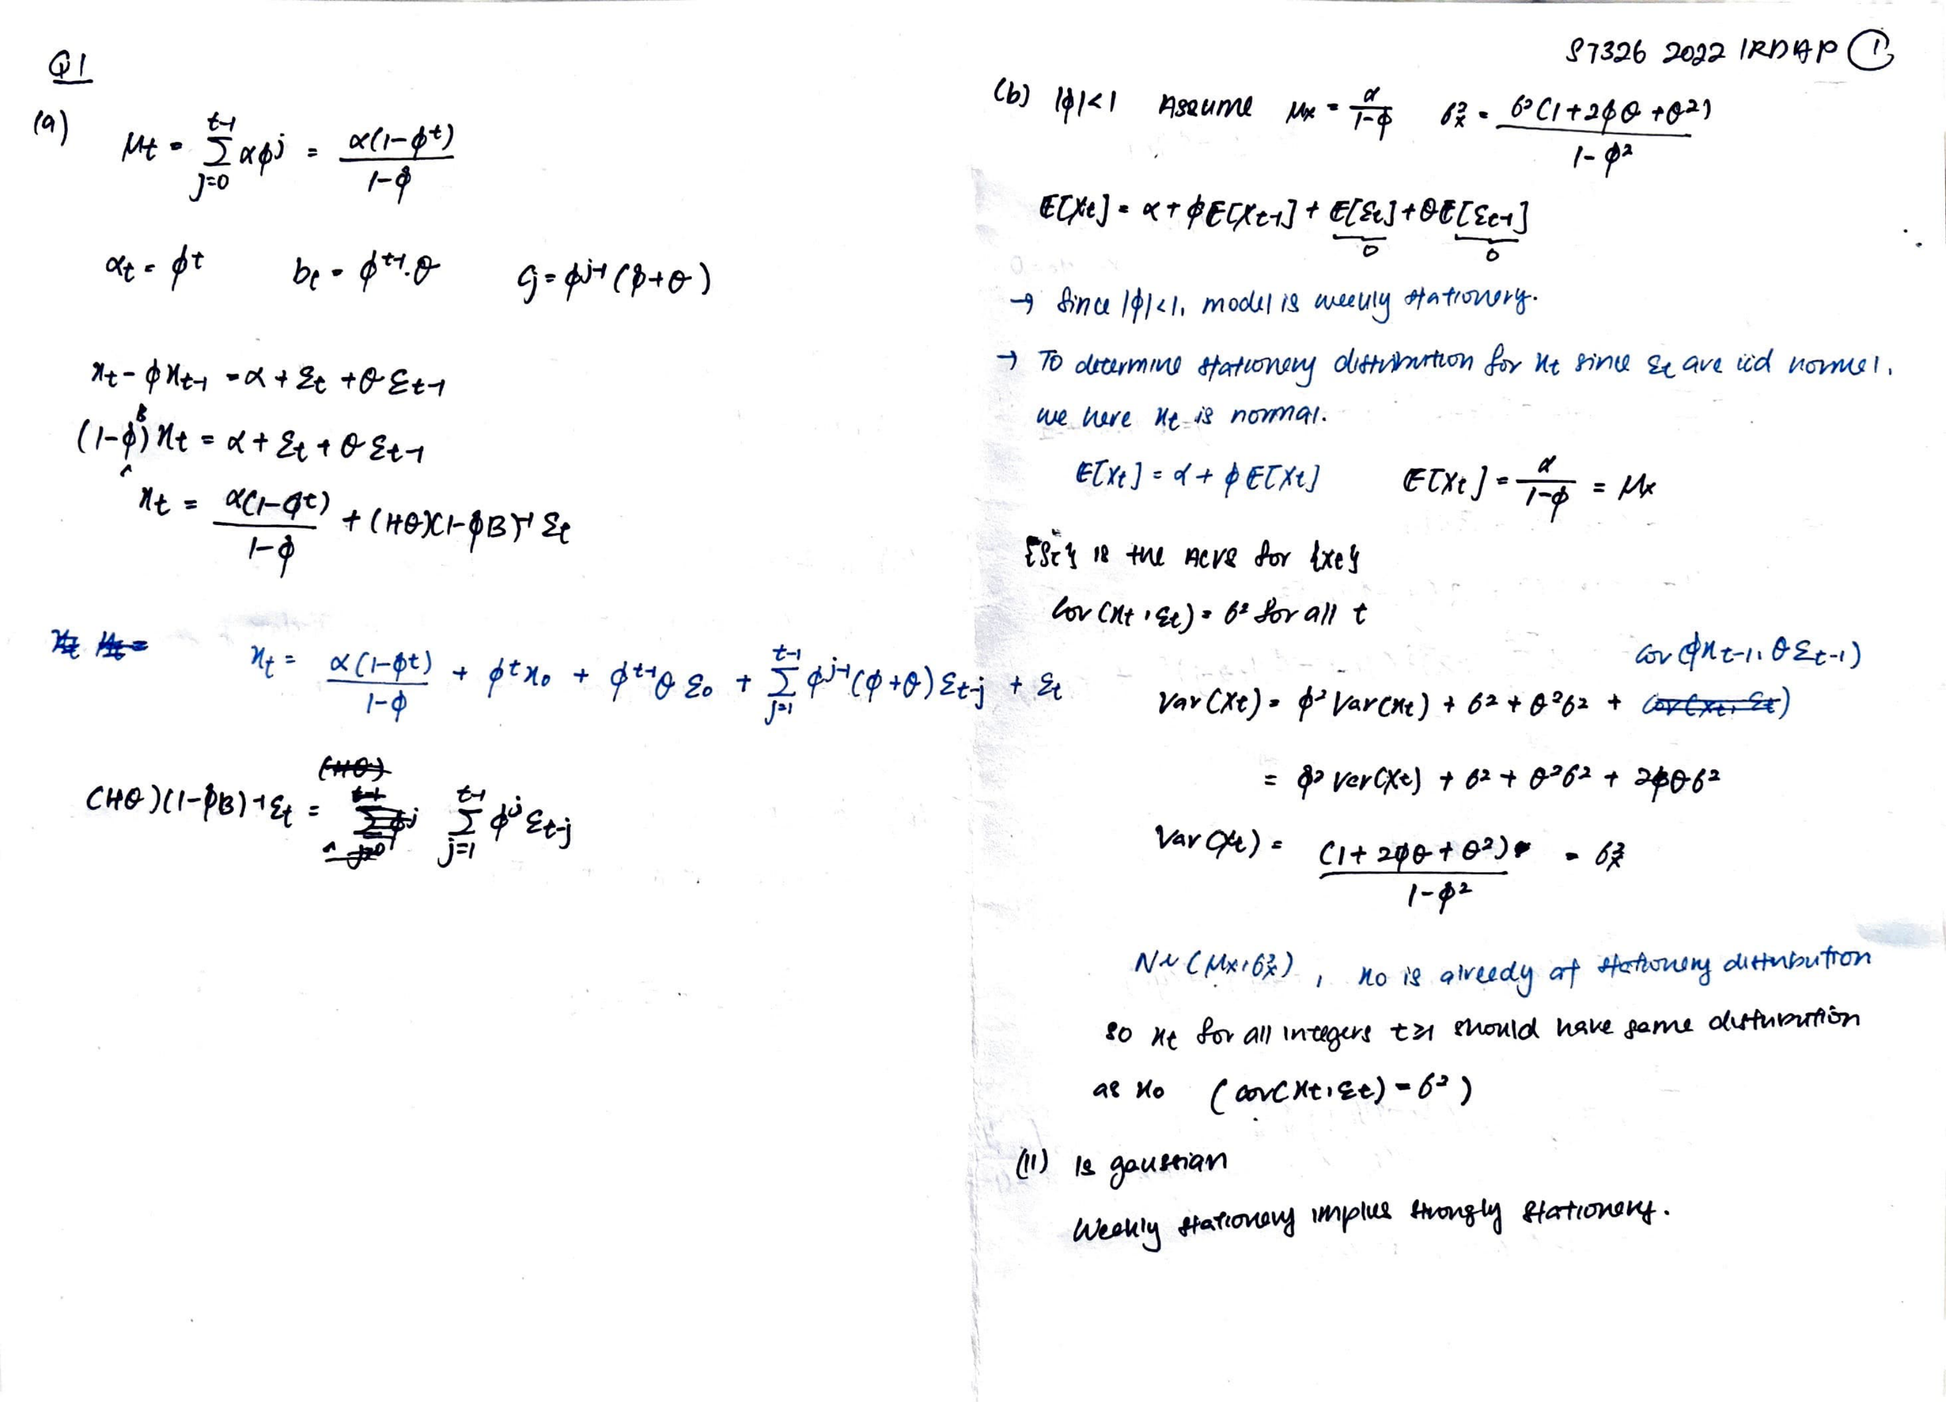 Q1
(a)
μt = Σ_{j=0}^{t-1} αϕ^j = α(1-ϕ^t) / 1-ϕ
αt = ϕ^t   bt = ϕ^{t-1}.θ   cj = ϕ^{j-1}(ϕ+θ)
xt - ϕxt-1 = α + εt + θεt-1
(1-ϕB)xt = α + εt + θεt-1
xt = α(1-ϕ^t) / 1-ϕ + (1+θ)(1-ϕB)^{-1} εt
xt = α(1-ϕ^t) / 1-ϕ + ϕ^t x0 + ϕ^{t-1}θ ε0 + Σ_{j=1}^{t-1} ϕ^{j-1}(ϕ+θ)εt-j + εt
(1+θ)(1-ϕB)^{-1}εt = Σ_{j=1}^{t-1} ϕ^j εt-j
ST326 2022 IRDAP 1
(b) |ϕ|<1 Assume μx = α / 1-ϕ   σx² = σ²(1+2ϕθ+θ²) / 1-ϕ²
E[Xt] = α + ϕE[Xt-1] + E[εt] + θE[εt-1]
0 0
→ Since |ϕ|<1, model is weekly stationery.
→ To determine stationery distribution for xt since εt are iid normal,
we have xt is normal.
E[Xt] = α + ϕE[Xt]   E[Xt] = α / 1-ϕ = μx
{St} is the ACVS for {xt}
cov(xt, εt) = σ² for all t
cov(ϕxt-1, θεt-1)
Var(Xt) = ϕ² Var(xt) + σ² + θ²σ² +
= ϕ² Var(Xt) + σ² + θ²σ² + 2ϕθσ²
Var(Xt) = (1+2ϕθ+θ²) / 1-ϕ² = σx²
N~(μx, σx²), x0 is already at stationery distribution
so xt for all integers t≥1 should have same distribution
as x0 (cov(xt, εt) = σ²)
(ii) Is gaussian
Weekly stationery implies strongly stationery.